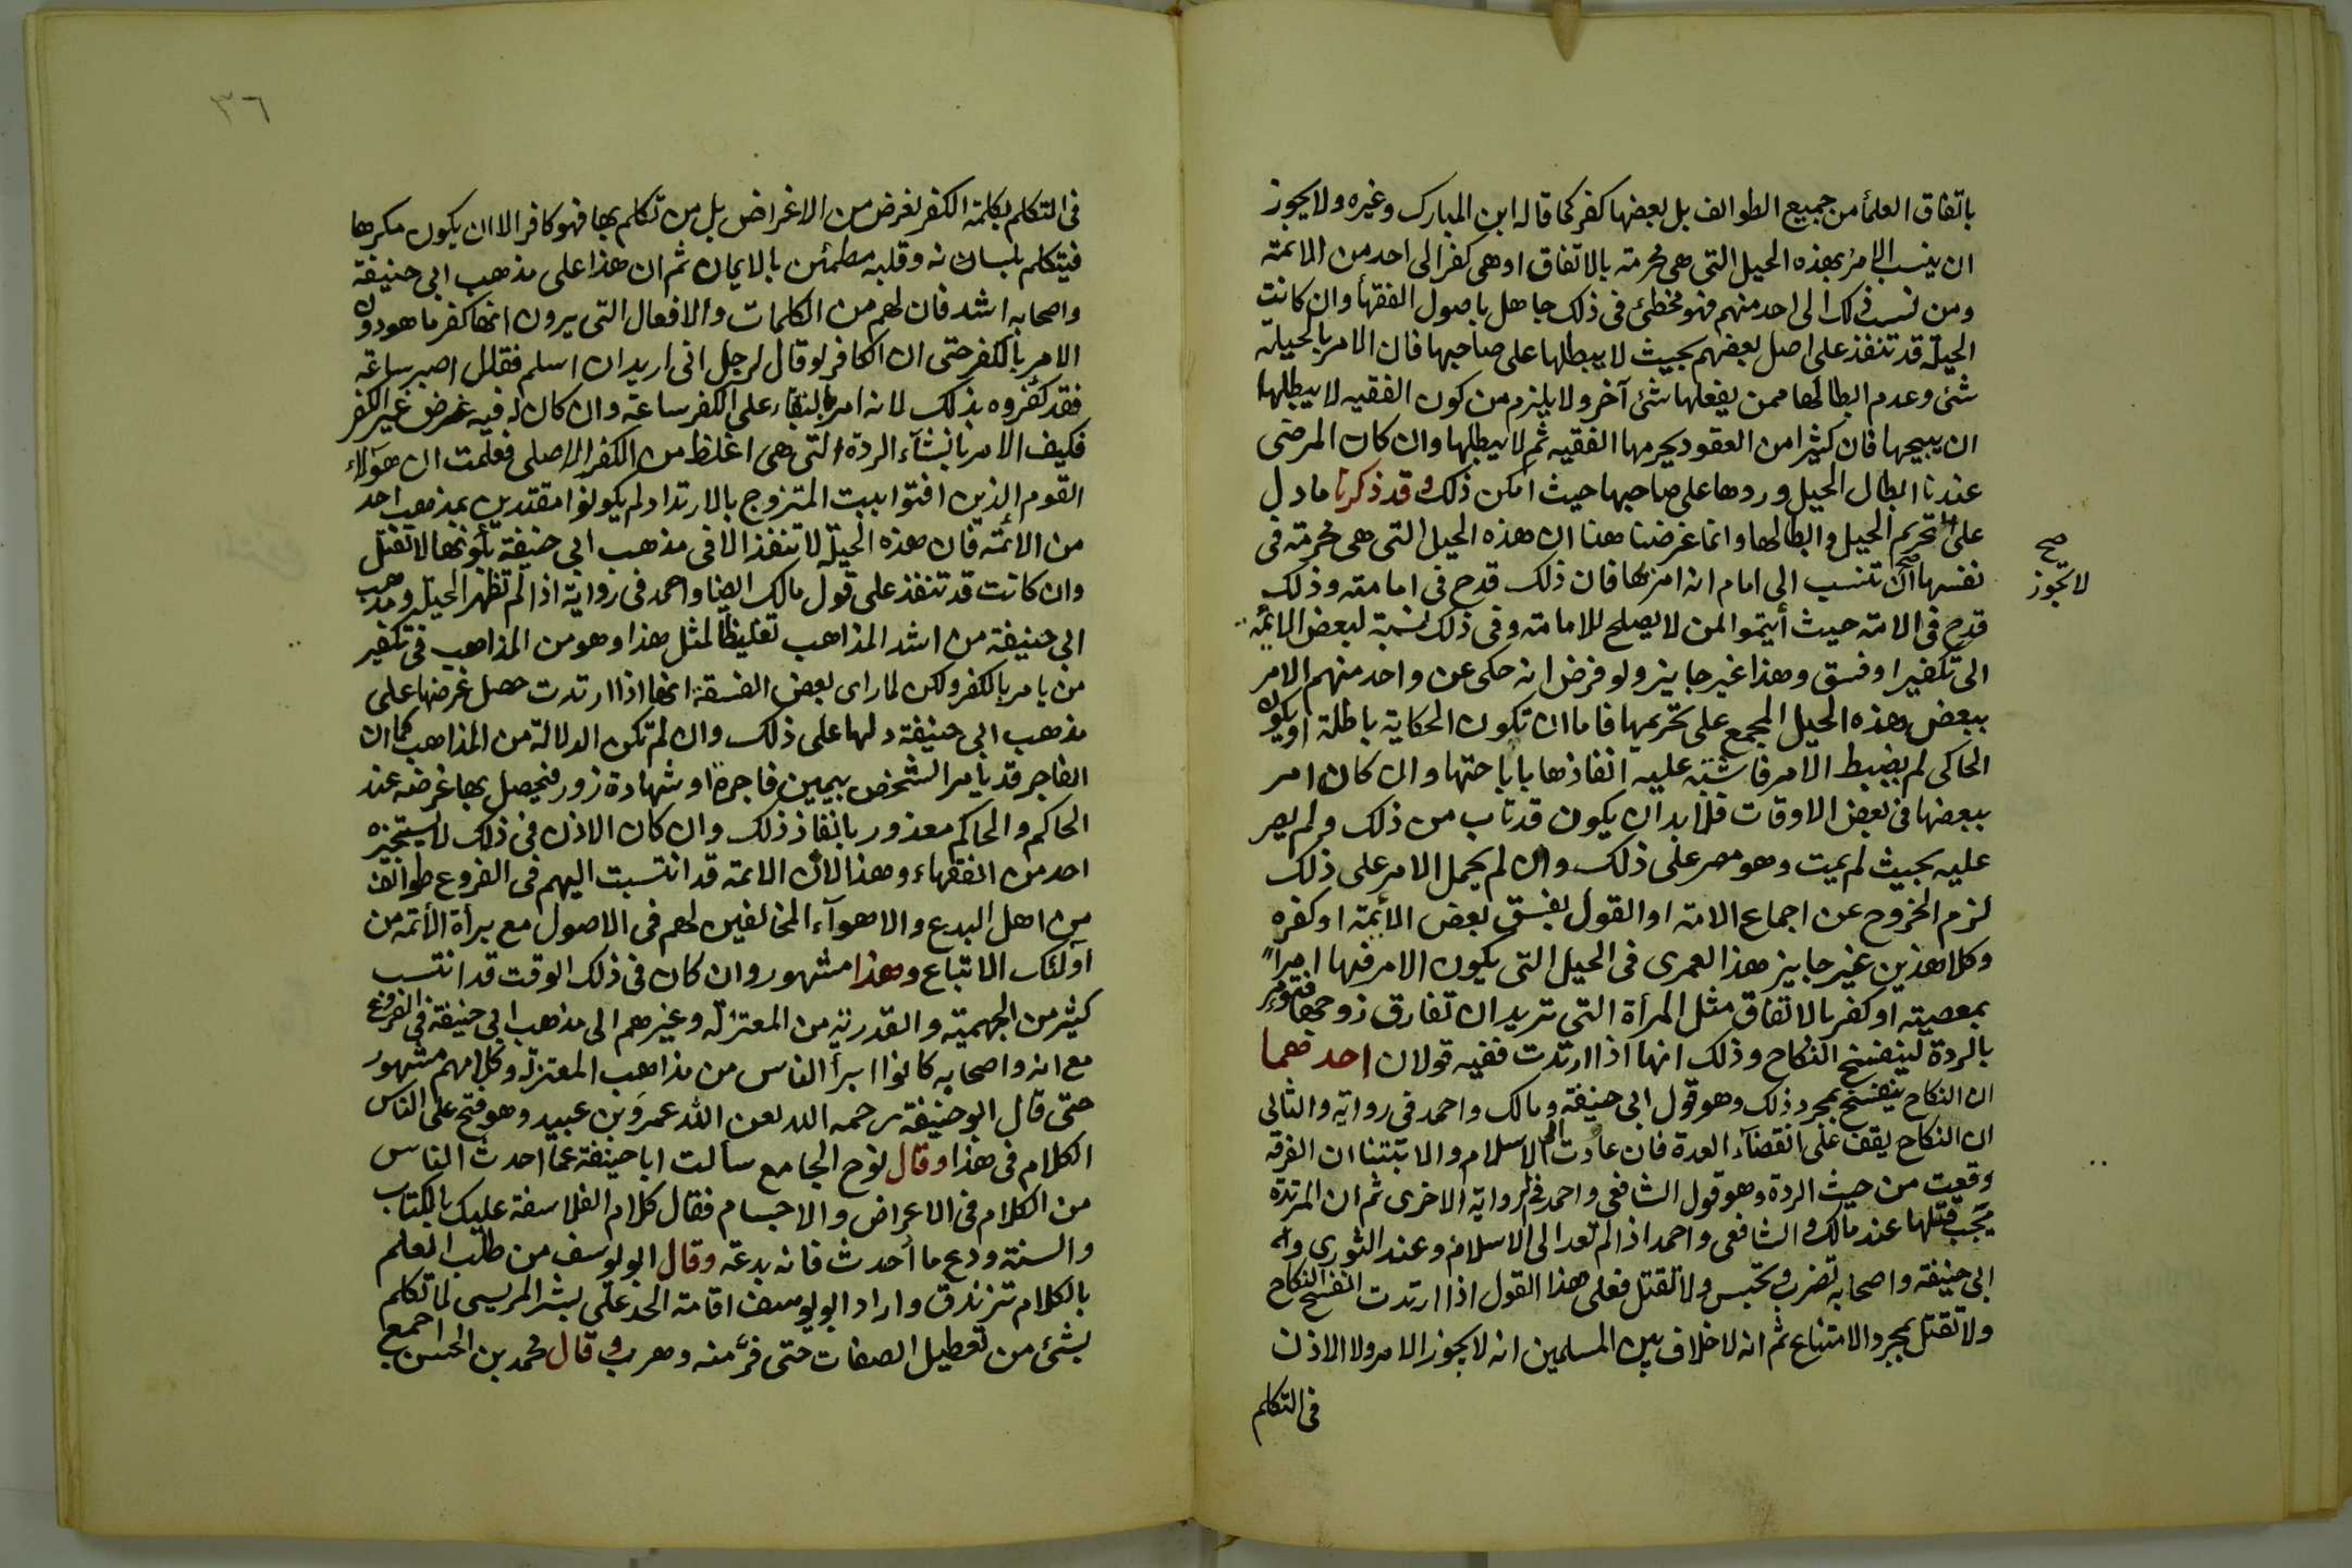 باتفاق العلمأ من جميع الطوائف بل بعضها كفر كما قاله ابن المبارك وغيره ولا يجوز
ان ينسب الامر بهذه الحيل التى هى محرمة بالاتفاق او هى كفر الى احد من الائمة
ومن نسب ذلك الى احد منهم فهو مخطئ فى ذلك جاهل باصول الفقهأ وان كانت
الحيلة قد تنفذ على اصل بعضهم بحيث لا يبطلها على صاحبها فان الامر بالحيلة
شئ وعدم ابطالها ممن يفعلها شئ آخر ولا يلزم من كون الفقيه لا يبطلها
ان يبيحها فان كثيرا من العقود يحرمها الفقيه ثم لا يبطلها وان كان المرضى
عندنا ابطال الحيل وردها على صاحبها حيث امكن ذلك وقد ذكرنا ما دل
على تحريم الحيل وابطالها وانما غرضنا هنا ان هذه الحيل التى هى محرمة فى
نفسها ان تنسب الى امام انه امر بها فان ذلك قدح فى امامته وذلك
صح
لا يجوز
قدح فى الامة حيث أيتموا لمن لا يصلح للامامة وفى ذلك نسبة لبعض الائمة
الى تكفير او فسق وهذا غير جايز ولو فرض انه حكى عن واحد منهم الامر
ببعض هذه الحيل المجمع على تحريمها فاما ان تكون الحكاية باطلة او يكون
الحاكى لم يضبط الامر فاشتبه عليه انفاذها باباحتها وان كان امر
ببعضها فى بعض الاوقات فلا بد ان يكون قد تاب من ذلك ولم يصر
عليه بحيث لم يمت وهو مصر على ذلك وان لم يحمل الامر على ذلك
لزم الخروج عن اجماع الامة او القول بفسق بعض الأئمة او كفره
وكلا هذين غير جايز هذا لعمرى فى الحيل التى يكون الامر فيها امراً
بمعصية او كفر بالاتفاق مثل المرأة التى تريد ان تفارق زوجها فتومر
بالردة لينفسخ النكاح وذلك انها اذا ارتدت ففيه قولان احدهما
ان النكاح ينفسخ بمجرد ذلك وهو قول ابى حنيفة ومالك واحمد فى رواية والثانى
ان النكاح يقف على انقضآء العدة فان عادت الى الاسلام والا تبيننا ان الفرقة
وقعت من حيث الردة وهو قول الشافعى واحمد فى الرواية الاخرى ثم ان المرتدة
يجب قتلها عند مالك والشافعى واحمد اذا لم تعد الى الاسلام وعند الثورى
ابى حنيفة واصحابه تضرب وتحبس ولا تقتل فعلى هذا القول اذا ارتدت انفسخ النكاح
ولا تقتل بمجرد الامتناع ثم انه لا خلاف بين المسلمين انه لا يجوز الامر ولا الاذن
فى التكلم
٣٦
فى التكلم بكلمة الكفر لغرض من الاغراض بل من تكلم بها فهو كافر الا ان يكون مكرها
فيتكلم بلسانه وقلبه مطمئن بالايمان ثم ان هذا على مذهب ابى حنيفة
واصحابه اشد فان لهم من الكلمات والافعال التى يرون انها كفر ما هو دون
الامر بالكفر حتى ان الكافر لو قال لرجل انى اريد ان اسلم فقال اصبر ساعة
فقد كفروه بذلك لانه امر بالبقاء على الكفر ساعة وان كان له فيه غرض غير الكفر
فكيف الامر بانشآء الردة التى هى اغلظ من الكفر الاصلى فعلمت ان هؤلاء
القوم الذين افتوا ببت المتزوج بالارتداد لم يكونوا مقتدين بمذهب احد
من الأئمة فان هذه الحيلة لا تنفذ الا فى مذهب ابى حنيفة بكونها لا تقتل
وان كانت قد تنفذ على قول مالك ايضا واحمد فى رواية اذا لم تظهر الحيلة ومذهب
ابى حنيفة من اشد المذاهب تغليظا لمثل هذا وهو من المذاهب فى تكفير
من يامر بالكفر ولكن لما راى بعض الفسقة انها اذا ارتدت حصل غرضها على
مذهب ابى حنيفة دلها على ذلك وان لم تكن الدلالة من المذاهب كما ان
الفاجر قد يامر الشخص بيمين فاجرة او شهادة زور فيحصل بها غرضه عند
الحاكم والحاكم معذور بانفاذ ذلك وان كان الاذن فى ذلك لا يستجيزه
احد من الفقهاء وهذا لان الائمة قد انتسبت اليهم فى الفروع طوائف
من اهل البدع والاهوآء المخالفين لهم فى الاصول مع برأة الأئمة من
أولئك الاتباع وهذا مشهور وان كان فى ذلك الوقت قد انتسب
كثير من الجهمية والقدرية من المعتزلة وغيرهم الى مذهب ابى حنيفة فى الفروع
مع انه واصحابه كانوا ابرأ الناس من مذاهب المعتزلة وكلامهم مشهور
حتى قال ابو حنيفة رحمه الله لعن الله عمرو بن عبيد وهو فتح على الناس
الكلام فى هذا وقال نوح الجامع سألت ابا حنيفة عما احدث الناس
من الكلام فى الاعراض والاجسام فقال كلام الفلاسفة عليك بالكتاب
والسنة ودع ما أحدث فانه بدعة وقال ابو يوسف من طلب العلم
بالكلام تزندق واراد ابو يوسف اقامة الحد على بشر المريسى لما تكلم
بشئ من تعطيل الصفات حتى فرّ منه وهرب وقال محمد بن الحسن اجمع